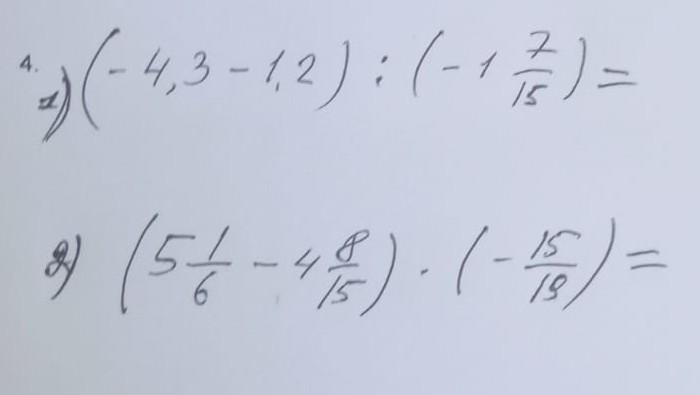 4.
1) (- 4,3 - 1,2) : (- 1 7/15) =
2) (5 1/6 - 4 8/15) · (- 15/19) =